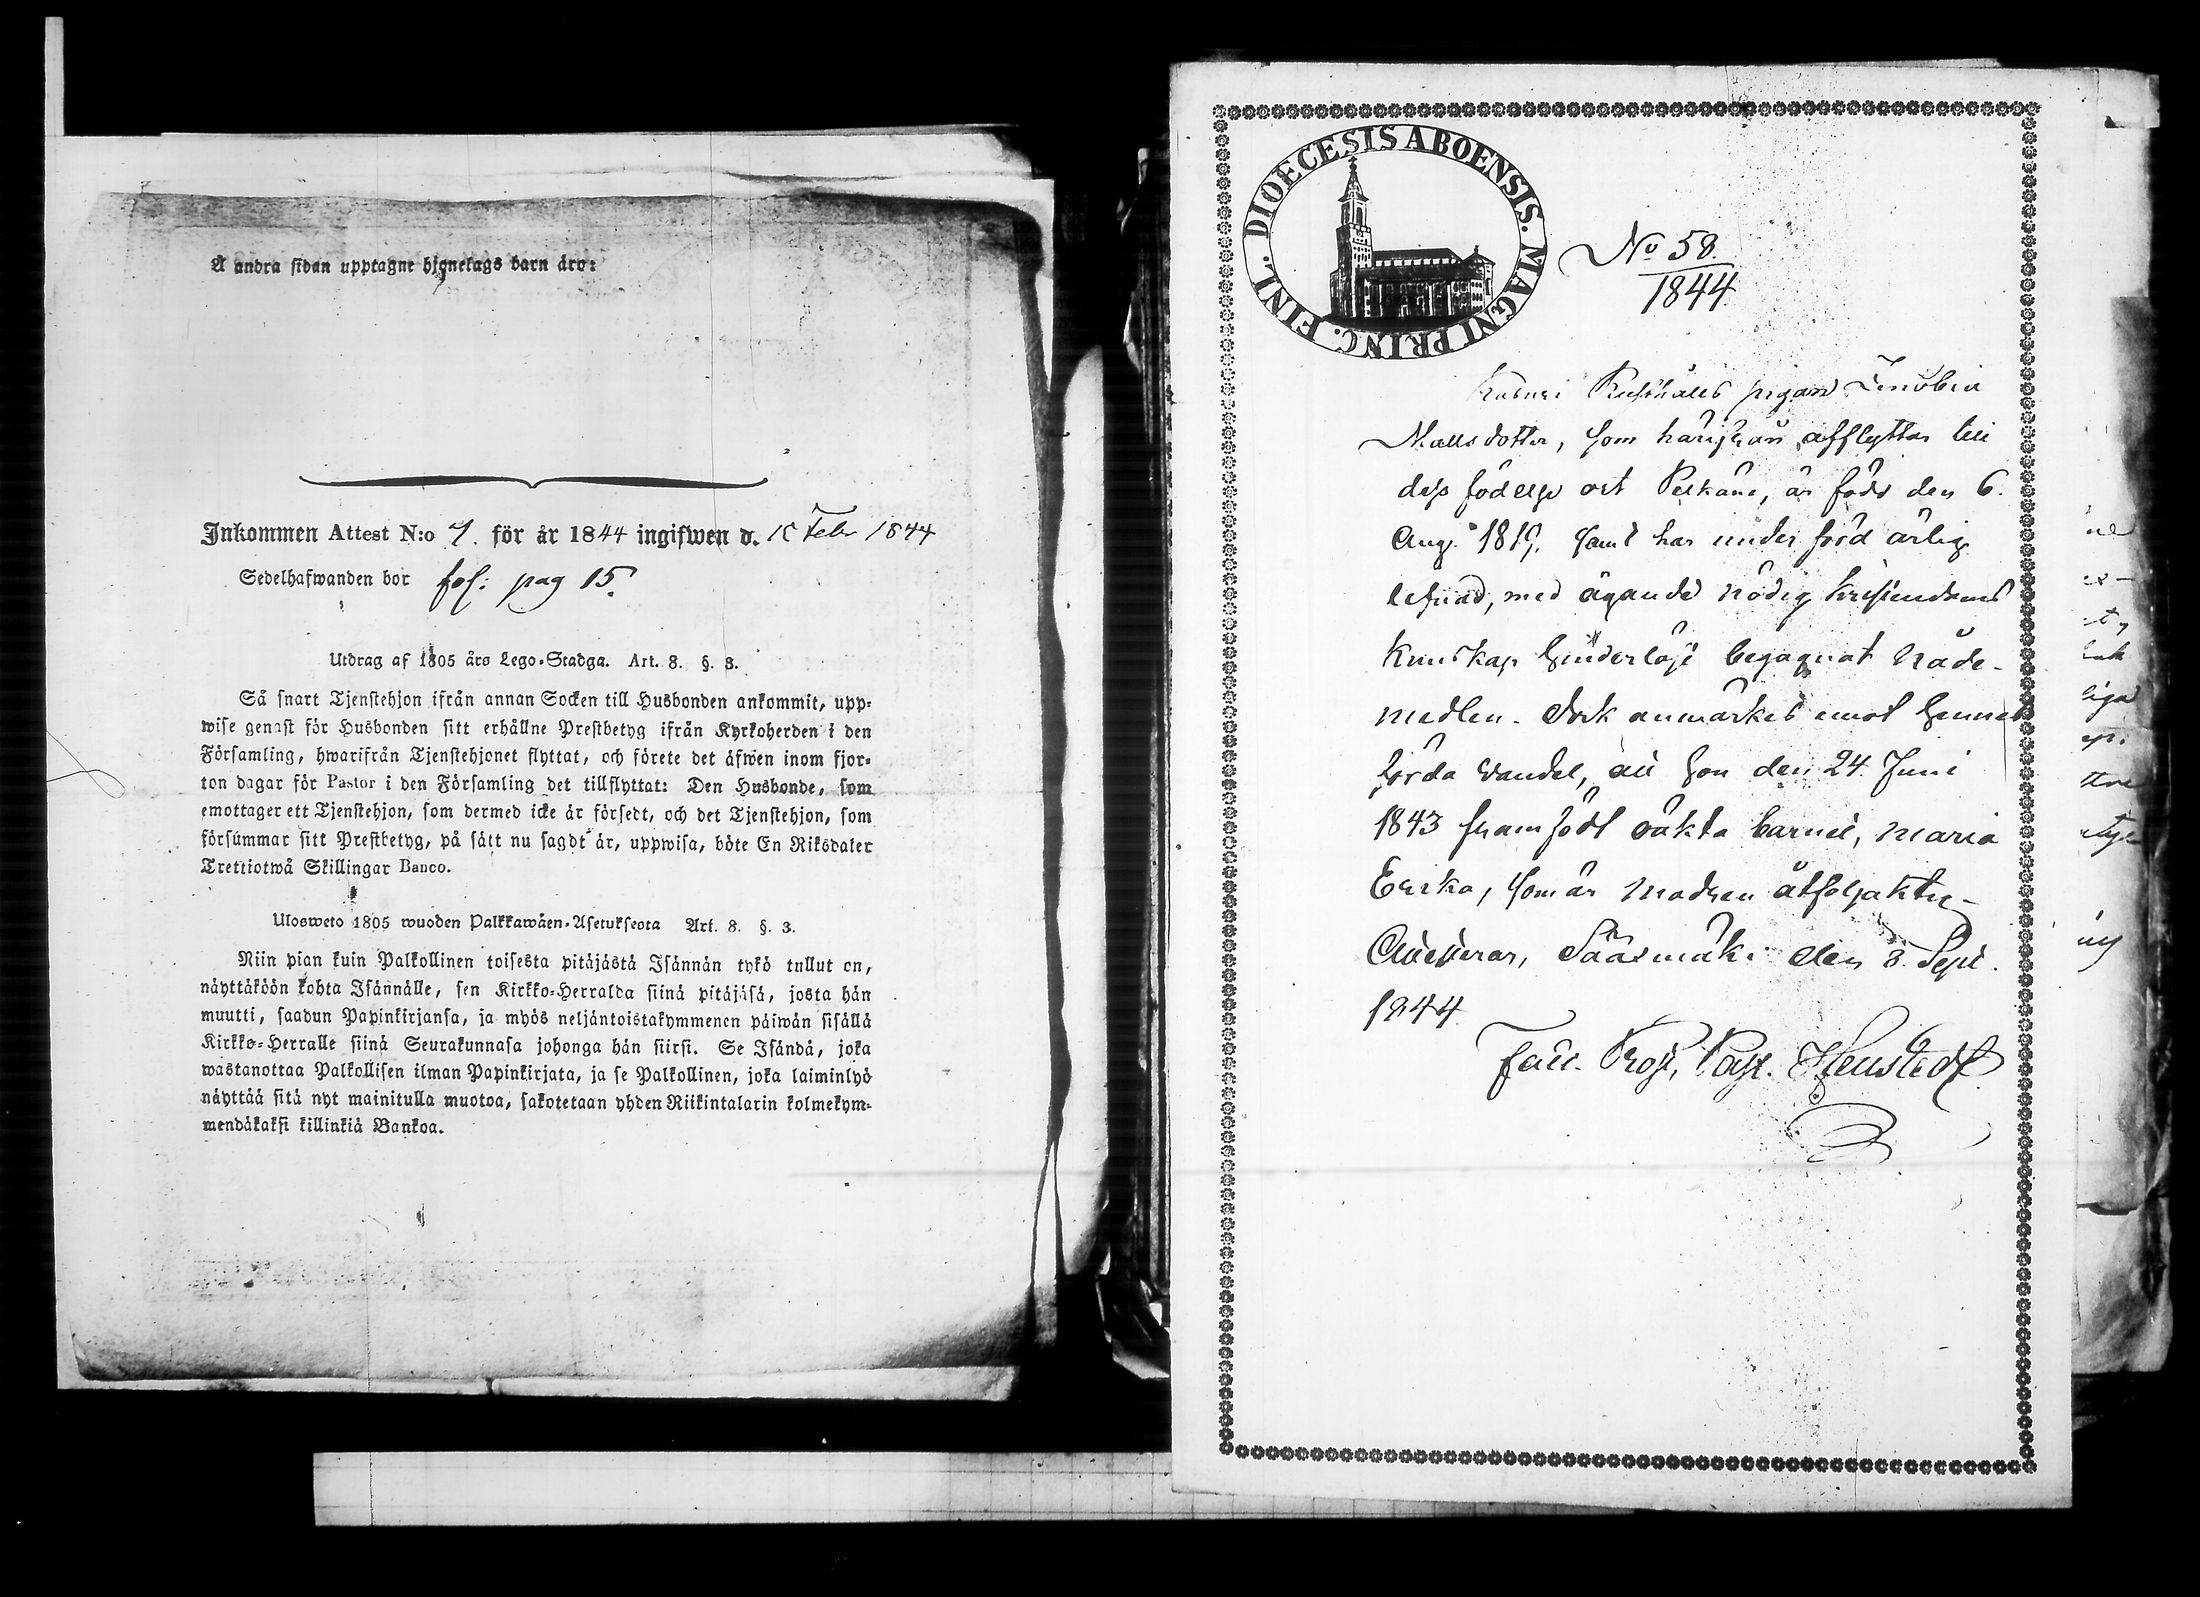 Å andra sidan upptagne hjonelags barn äro:
Inkommen Attest N:o 7. för år 1844 ingifwen d. 15 Febr 1844
Sedelhafwanden bor fol: pag 15.
Utdrag af 1805 års Lego-Stadga. Art. 8. §. 3.
Så snart Tjenstehjon ifrån annan Socken till Husbonden ankommit, upp-
wise genast för Husbonden sitt erhållne Prestbetyg ifrån Kyrkoherden i den
Församling, hwarifrån Tjenstehjonet flyttat, och förete det äfwen inom fjor-
ton dagar för Pastor i den Församling det tillflyttat: Den Husbonde, som
emottager ett Tjenstehjon, som dermed icke är försedt, och det Tjenstehjon, som
försummar sitt Prestbetyg, på sätt nu sagdt är, uppwisa, böte En Riksdaler
Trettiotwå Skillingar Banco.
Ulosweto 1805 wuoden Palkkawäen-Asetuksesta Art. 8. §. 3.
Niin pian kuin Palkollinen toisesta pitäjästä Isännän tykö tullut on,
näyttäköön kohta Isännälle, sen Kirkko-Herralda siinä pitäjäsä, josta hän
muutti, saadun Papinkirjansa, ja myös neljäntoistakymmenen päiwän sisällä
Kirkko-Herralle siinä Seurakunnasa johonga hän siirsi. Se Isändä, joka
wastanottaa Palkollisen ilman Papinkirjata, ja se Palkollinen, joka laiminlyö
näyttää sitä nyt mainitulla muotoa, sakotetaan yhden Riikintalarin kolmekym-
mendäkaksi killinkiä Bankoa.
DIOECESIS ABOENSIS. MAGNI PRINC. FINL.
No 58.
1844
Rusthålls pigan Zenobia
Mattsdotter, som härifrån afflyttar till
dess födelse ort Pelkäne, är född den 6.
Aug. 1819, samt har under förd ärlig
lefnad, med ägande nödig kristendoms
kunskap hinderlöst begagnat Nåde-
medlen. Dock anmärkes emot hennes
förda vandel, att hon den 24 Juni
1843 framfödt oäkta barnet, Maria
Erika, som är modren åtföljaktig
Attesterar, Sääxmäki den 8. Sept.
1844.
Past.